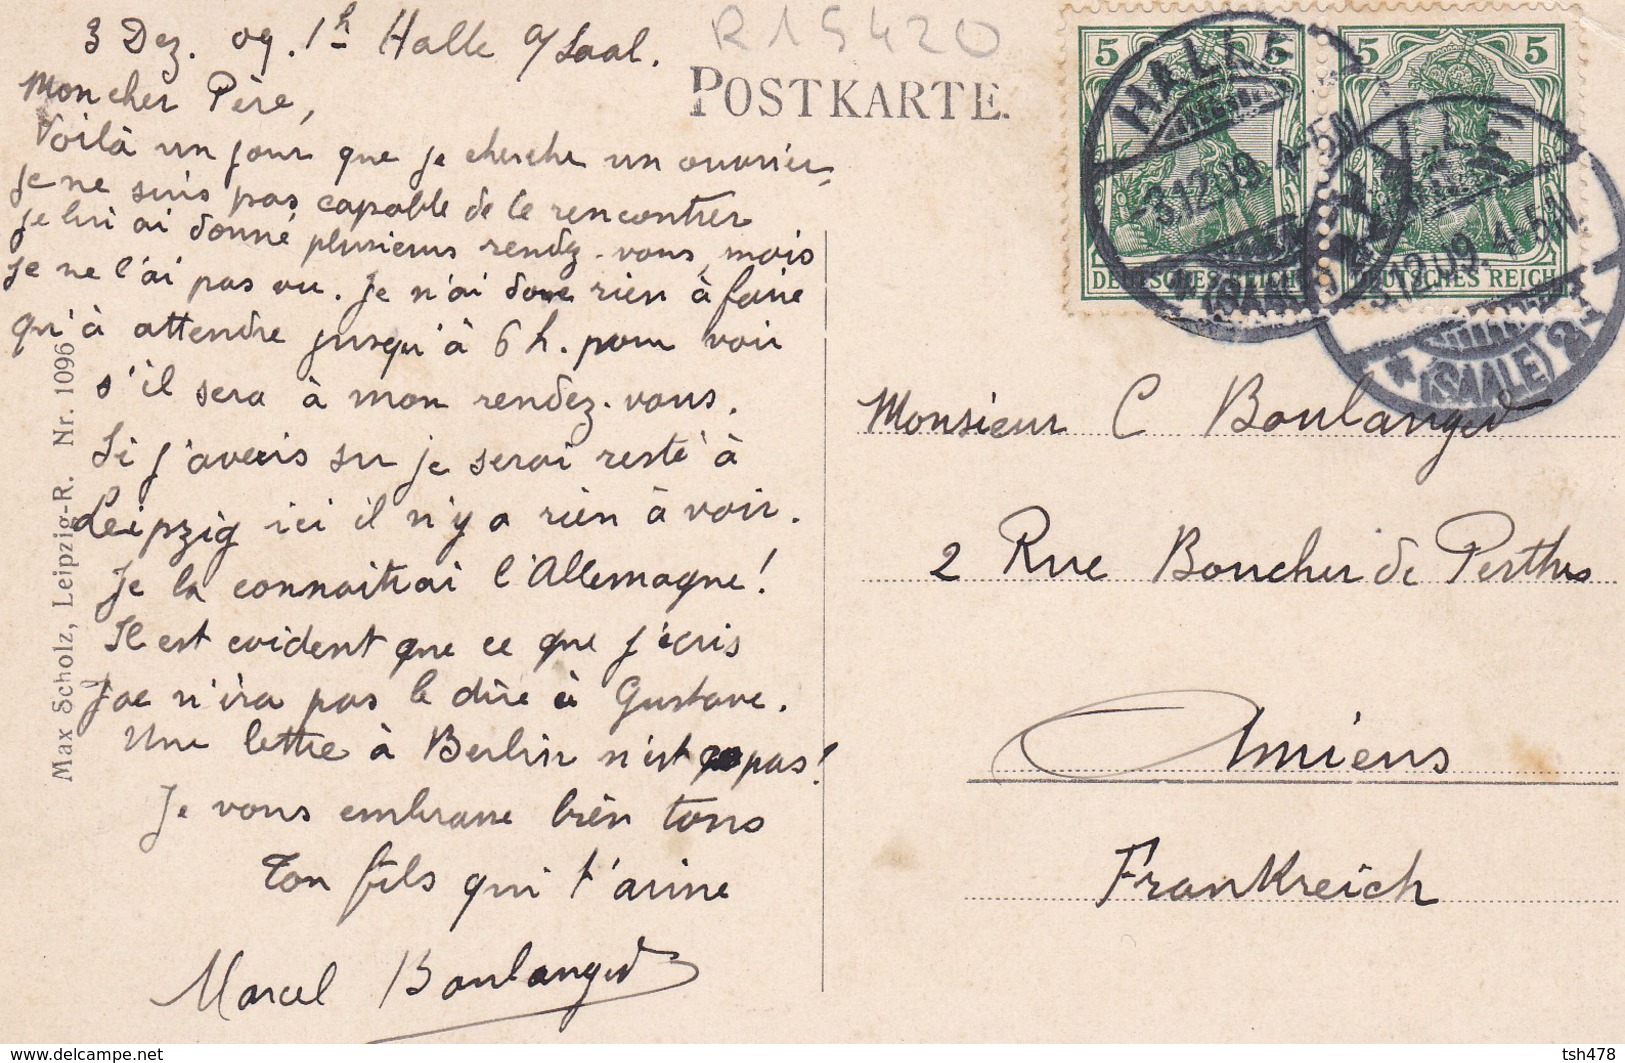 3 Dez. 09. 1h Halle a/Saal.
Mon cher Père,
Voilà un jour que je cherche un ouvrier,
je ne suis pas capable de le rencontrer
je lui ai donné plusieurs rendez-vous, mais
je ne l'ai pas vu. Je n'ai donc rien à faire
qu'à attendre jusqu'à 6 h. pour voir
s'il sera à mon rendez-vous.
Si j'avais su je serai resté à
Leipzig ici il n'y a rien à voir.
Je la connaitrai l'Allemagne!
Il est evident que ce que j'écris
Joe n'ira pas le dire à Gustave.
Une lettre à Berlin n'est pas!
Je vous embrasse bien tous
Ton fils qui t'aime
Marcel Boulanger
Max Scholz, Leipzig-R. Nr. 1096
R15420
POSTKARTE.
5 5
5 5
DEUTSCHES REICH
DEUTSCHES REICH
HALLE
-3.12.09. 4-5N.
(SAALE)
HALLE
-3.12.09. 4-5N.
* (SAALE) 2
Monsieur C Boulanger
2 Rue Boucher de Perthes
Amiens
Frankreich
www.delcampe.net
tsh478